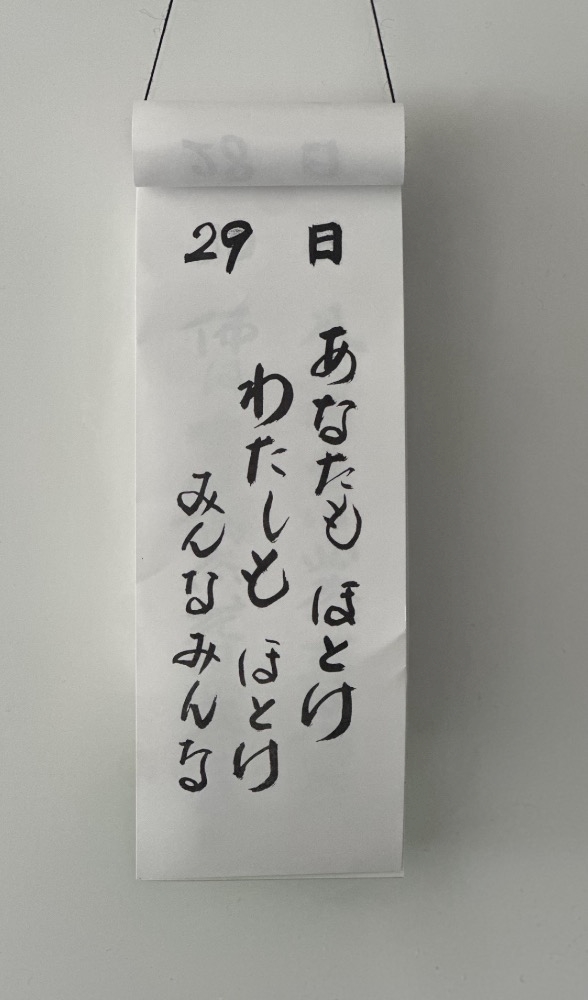 29日
あなたも ほとけ
わたしも ほとけ
みんなみんな